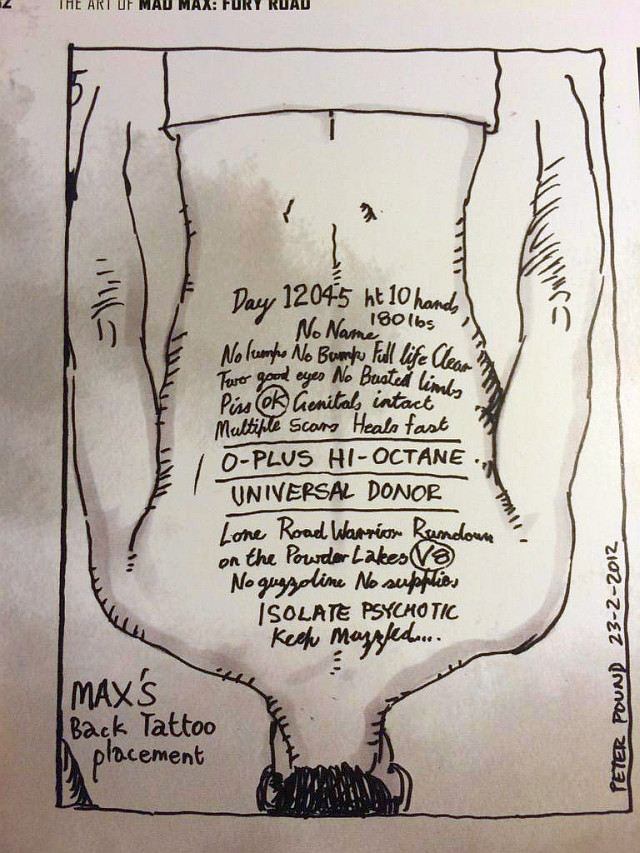 THE ART OF MAD MAX: FURY ROAD
5
Day 12045 ht 10 hands
180 lbs
No Name
No lumps No Bumps Full life Clear
Two good eyes No Busted limbs
Piss OK Genitals intact
Multiple Scars Heals fast
O-PLUS HI-OCTANE
UNIVERSAL DONOR
Lone Road Warrior Rundown
on the Powder Lakes V8
No guzzoline No supplies
ISOLATE PSYCHOTIC
Keep Muzzled....
MAX'S
Back Tattoo
placement
PETER POUND 23-2-2012